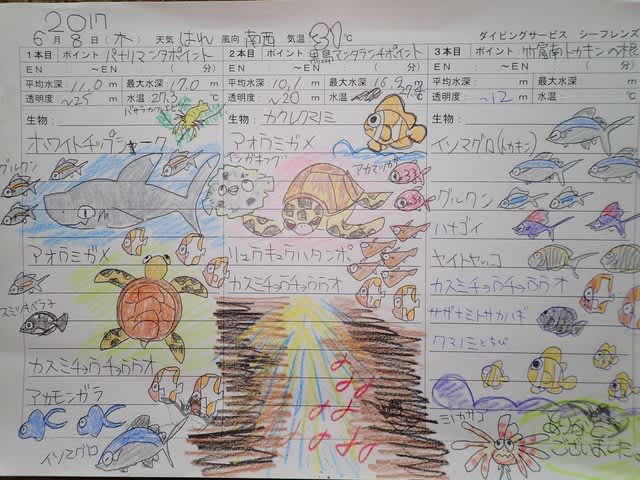 2017
6月 8日 (木) 天気 はれ 風向 南西 気温 30℃
ダイビングサービス シーフレンズ
1本目 ポイント パナリマンタポイント
EN : ~EN : ( 分)
平均水深 11.0 m 最大水深 17.0 m
透明度 ~25 m 水温 27.3 ℃
生物:
ホワイトチップシャーク
グルクン
アオウミガメ
カスミチョウチョウウオ
アカモンガラ
イソマグロ
2本目 ポイント 黒島マンタランチポイント
EN : ~EN : ( 分)
平均水深 10.1 m 最大水深 16.9 m
透明度 ~20 m 水温
生物: カクレクマノミ
アオウミガメ
アカマツカサ
リュウキュウハタンポ
カスミチョウチョウウオ
3本目 ポイント 竹富南トカキンの根
EN : ~EN : ( 分)
平均水深 m 最大水深 m
透明度 ~12 m 水温 ℃
生物:
イソマグロ(トカキン)
グルクン
ハナゴイ
ヤイトヤッコ
カスミチョウチョウウオ
サザナミトサカハギ
クマノミとちび
ミノカサゴ
ありがとう
ございました。